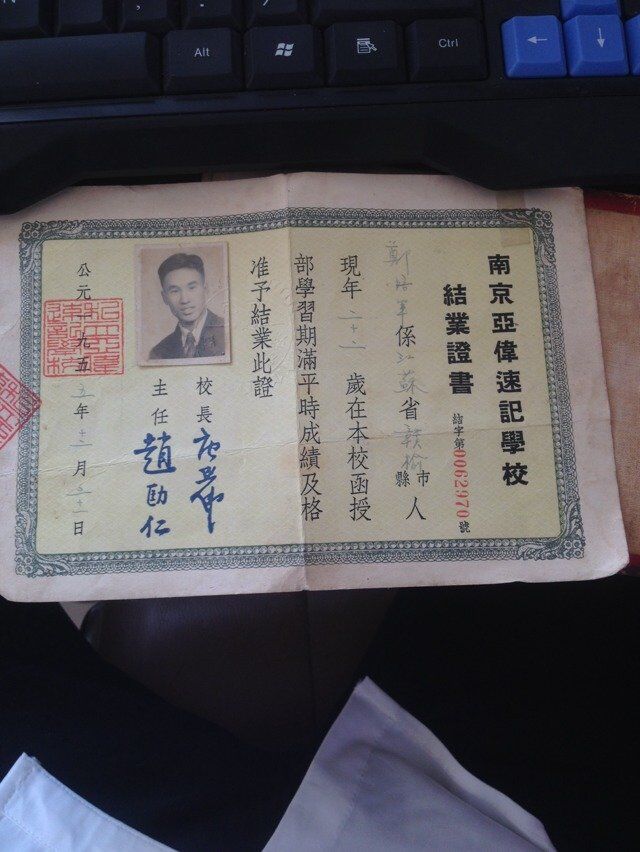 Alt
Ctrl
南京亞偉速記學校
結業證書
結字第0062970號
鄭培軍係江蘇省贛榆市縣人
現年二十歲在本校函授
部學習期滿平時成績及格
准予結業此證
校長唐亞偉
主任趙仁
公元一九五五年十二月三十一日